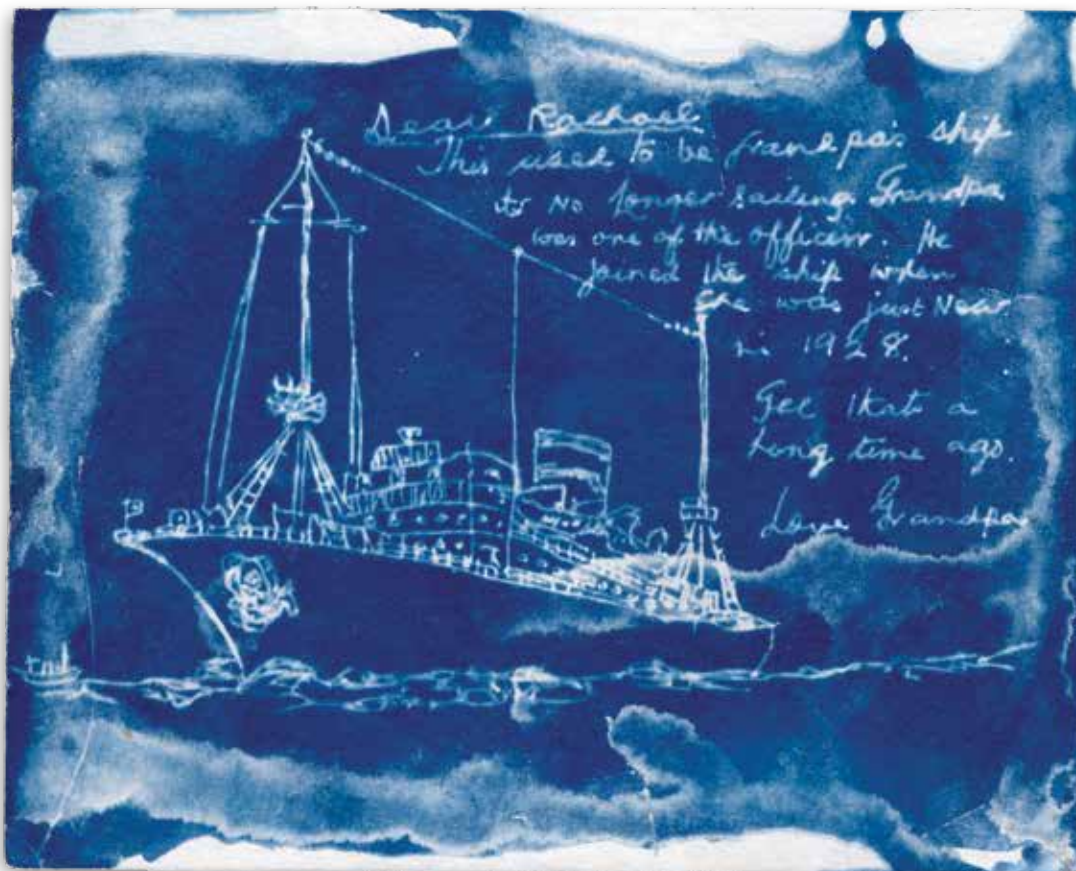 Dear Rachael
This used to be Grandpa's ship
its No Longer sailing. Grandpa
was one of the officers. He
joined the ship when
she was just New
in 1928.
Gee thats a
Long time ago.
Love Grandpa